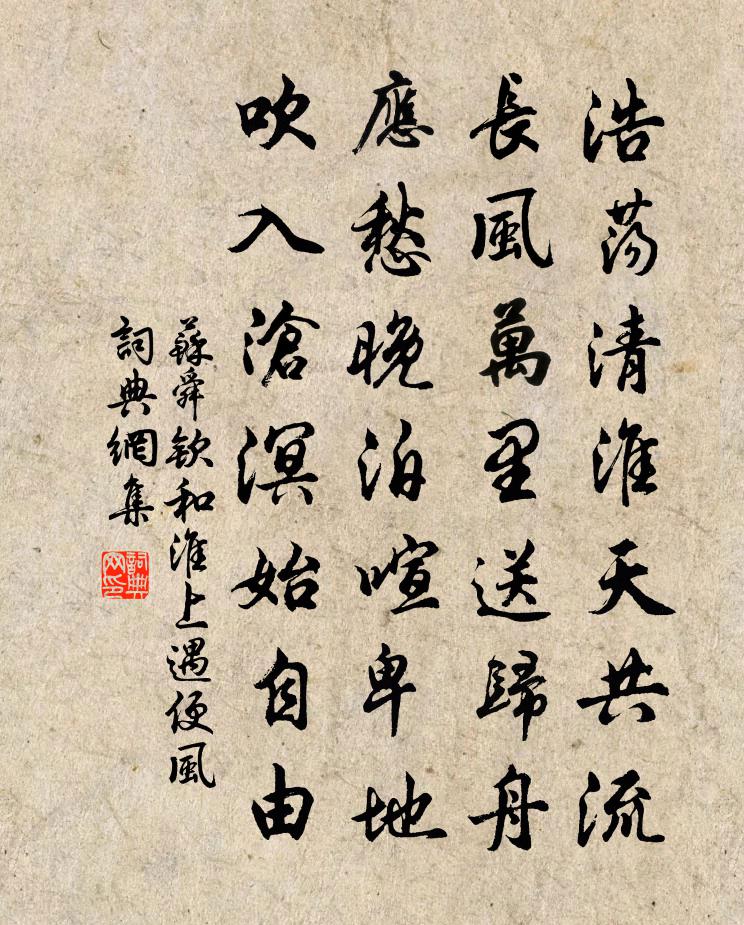 浩蕩清淮天共流
長風萬里送歸舟
應愁晚泊喧卑地
吹入滄溟始自由
蘇舜欽和淮上遇便風
詞典網集
詞典网印